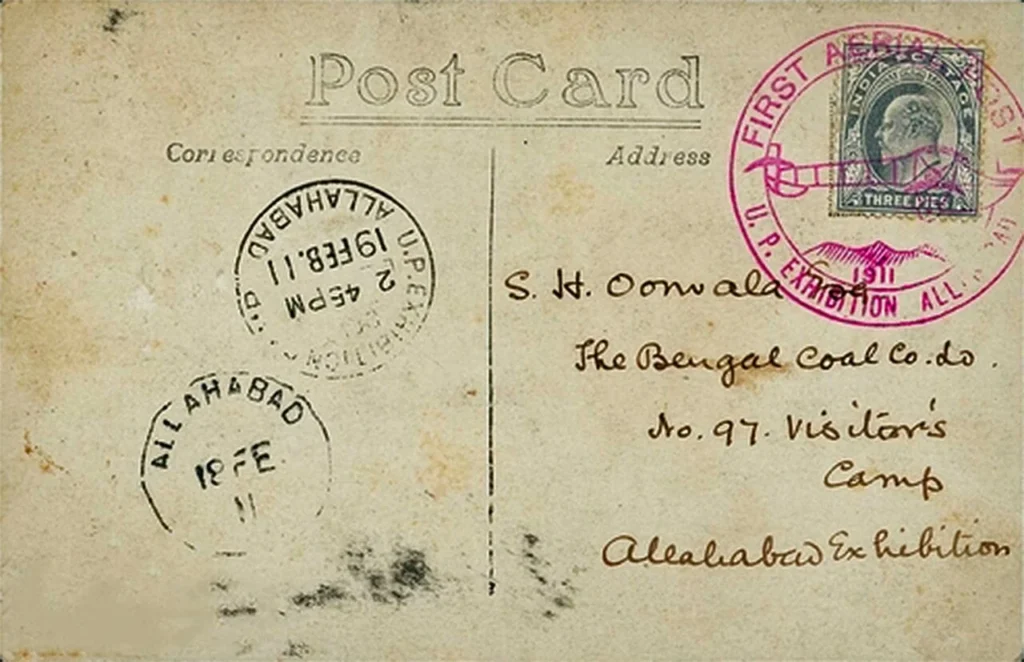 Post Card
Correspondence
Address
FIRST AERIAL POST
U. P. EXHIBITION ALL
1911
INDIA POSTAGE
THREE PIES
U.P. EXHIBITION
ALLAHABAD
19 FEB. 11
2 45 PM
ALLAHABAD
18 FE
11
S. H. Oonwala
The Bengal Coal Co. Ld.
No. 97. Visitor's
Camp
Allahabad Exhibition